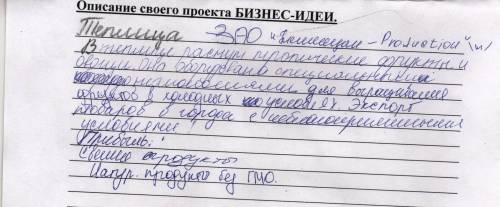 Описание своего проекта БИЗНЕС-ИДЕИ.
Теплица ЗАО -Production"
В теплице растут тропические фрукты и
овощи Она оборудована специальными
для выращивания
в холодных условиях. Экспорт
товаров в города с неблагоприятными
условиями
Прибыль:
Свежие продукты
Натур. продукты без ГМО.